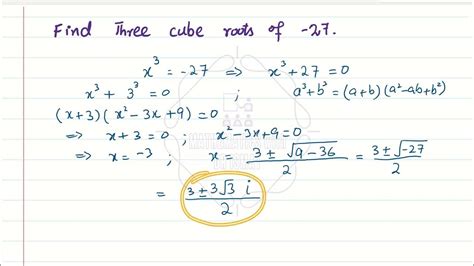 Find Three cube roots of -27.
x³ = -27 ⇒ x³ + 27 = 0
x³ + 3³ = 0 ; a³+b³ = (a+b)(a²-ab+b²)
(x+3)(x²-3x+9) = 0
⇒ x+3 = 0 ; x²-3x+9 = 0
⇒ x = -3 ; x = (3 ± √(9-36))/2 = (3 ± √-27)/2
= (3 ± 3√3 i)/2